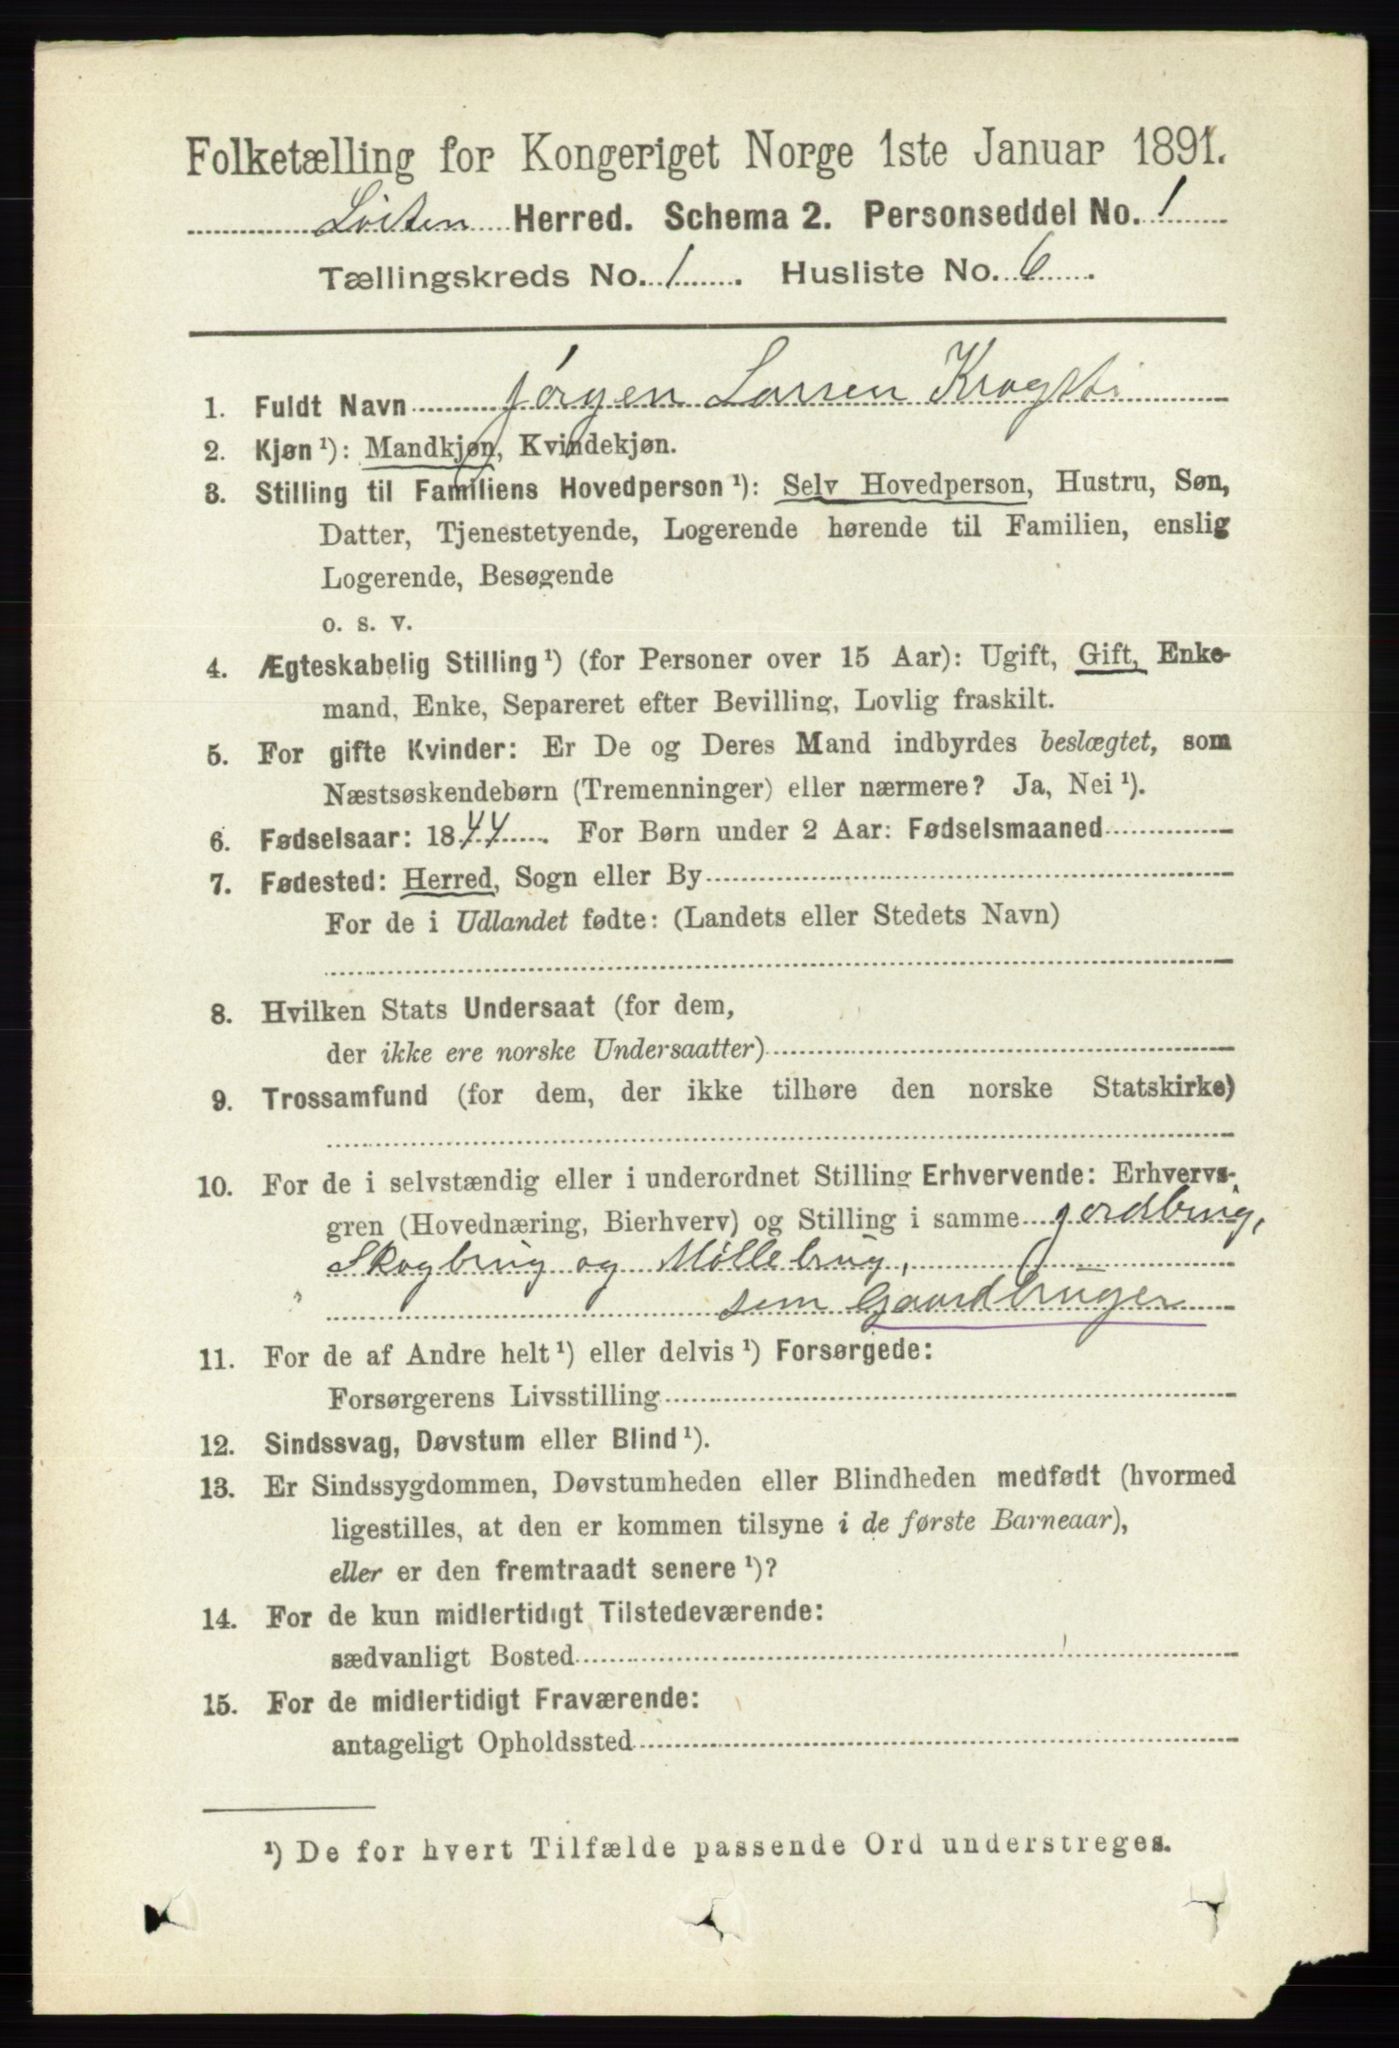 Folketælling for Kongeriget Norge 1ste Januar 1891.
Løiten Herred. Schema 2. Personseddel No. 1
Tællingskreds No. 1. Husliste No. 6.
1. Fuldt Navn Jørgen Larsen Krogsti
2. Kjøn ¹): Mandkjøn, Kvindekjøn.
3. Stilling til Familiens Hovedperson ¹): Selv Hovedperson, Hustru, Søn,
Datter, Tjenestetyende, Logerende hørende til Familien, enslig
Logerende, Besøgende
o. s. v.
4. Ægteskabelig Stilling ¹) (for Personer over 15 Aar): Ugift, Gift, Enke-
mand, Enke, Separeret efter Bevilling, Lovlig fraskilt.
5. For gifte Kvinder: Er De og Deres Mand indbyrdes beslægtet, som
Næstsøskendebørn (Tremenninger) eller nærmere? Ja, Nei ¹).
6. Fødselsaar: 1844. For Børn under 2 Aar: Fødselsmaaned
7. Fødested: Herred, Sogn eller By
For de i Udlandet fødte: (Landets eller Stedets Navn)
8. Hvilken Stats Undersaat (for dem,
der ikke ere norske Undersaatter)
9. Trossamfund (for dem, der ikke tilhøre den norske Statskirke)
10. For de i selvstændig eller i underordnet Stilling Erhvervende: Erhvervs-
gren (Hovednæring, Bierhverv) og Stilling i samme Jordbrug,
Skogbrug og Møllebrug,
som Gaardbruger
11. For de af Andre helt ¹) eller delvis ¹) Forsørgede:
Forsørgerens Livsstilling
12. Sindssvag, Døvstum eller Blind ¹).
13. Er Sindssygdommen, Døvstumheden eller Blindheden medfødt (hvormed
ligestilles, at den er kommen tilsyne i de første Barneaar),
eller er den fremtraadt senere ¹)?
14. For de kun midlertidigt Tilstedeværende:
sædvanligt Bosted
15. For de midlertidigt Fraværende:
antageligt Opholdssted
¹) De for hvert Tilfælde passende Ord understreges.